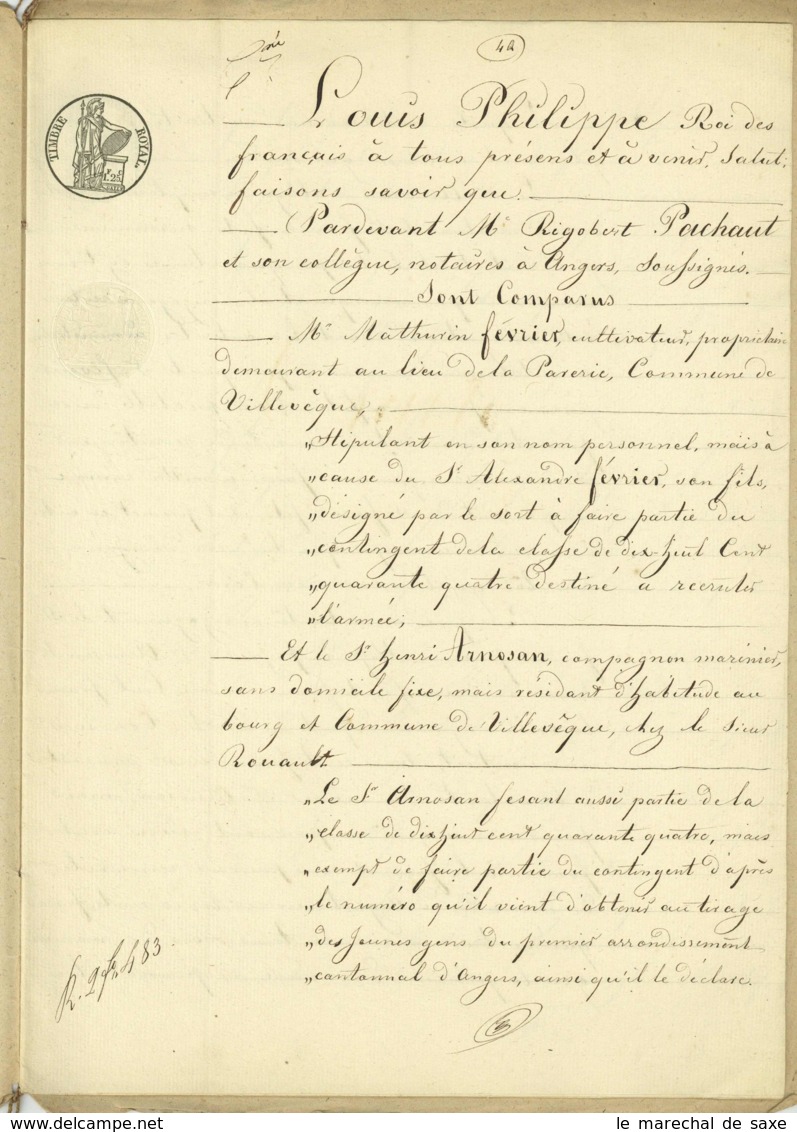 TIMBRE ROYAL
1F. 25C.
Louis Philippe Roi des
français à tous présens et à venir, Salut:
faisons savoir que.
Pardevant Me Rigobert Pachaut
et son collègue, notaires à Angers, Soussignés.
Sont Comparus
Mr Mathurin février, cultivateur, propriétaire
demeurant au lieu de la Parerie, Commune de
Villevêque,
"Stipulant en son nom personnel, mais à
"cause du Sr Alexandre février, son fils,
"désigné par le sort à faire partie du
"contingent de la classe de dix-huit Cent
"quarante quatre destiné a recruter
"l'armée;
Et le Sr henri Arnosan, compagnon marinier,
sans domicile fixe, mais résidant d'habitude au
bourg et Commune de Villevêque, chez le sieur
Rouault
"Le Sr Arnosan fesant aussi partie de la
"classe de dix huit cent quarante quatre, mais
"exempt de faire partie du contingent d'après
"le numéro qu'il vient d'obtenir au tirage
"des Jeunes gens du premier arrondissement
"cantonnal d'Angers, ainsi qu'il le déclare.
le marechal de saxe